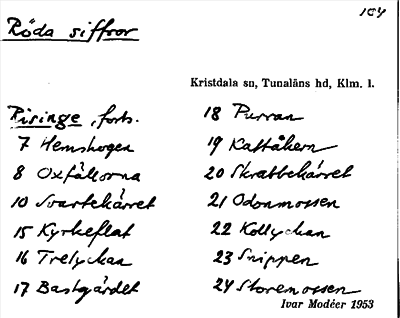 104
Röda siffror
Kristdala sn, Tunaläns hd, Klm. l.
Risinge, forts.
7 Hemshagen
8 Oxfällorna
10 Svartekärret
15 Kyrkeflat
16 Trelyckan
17 Bastgärdet
18 Purran
19 Kattåkern
20 Skrattekärret
21 Odonmossen
22 Kollyckan
23 Snippen
24 Storemossen
Ivar Modéer 1953